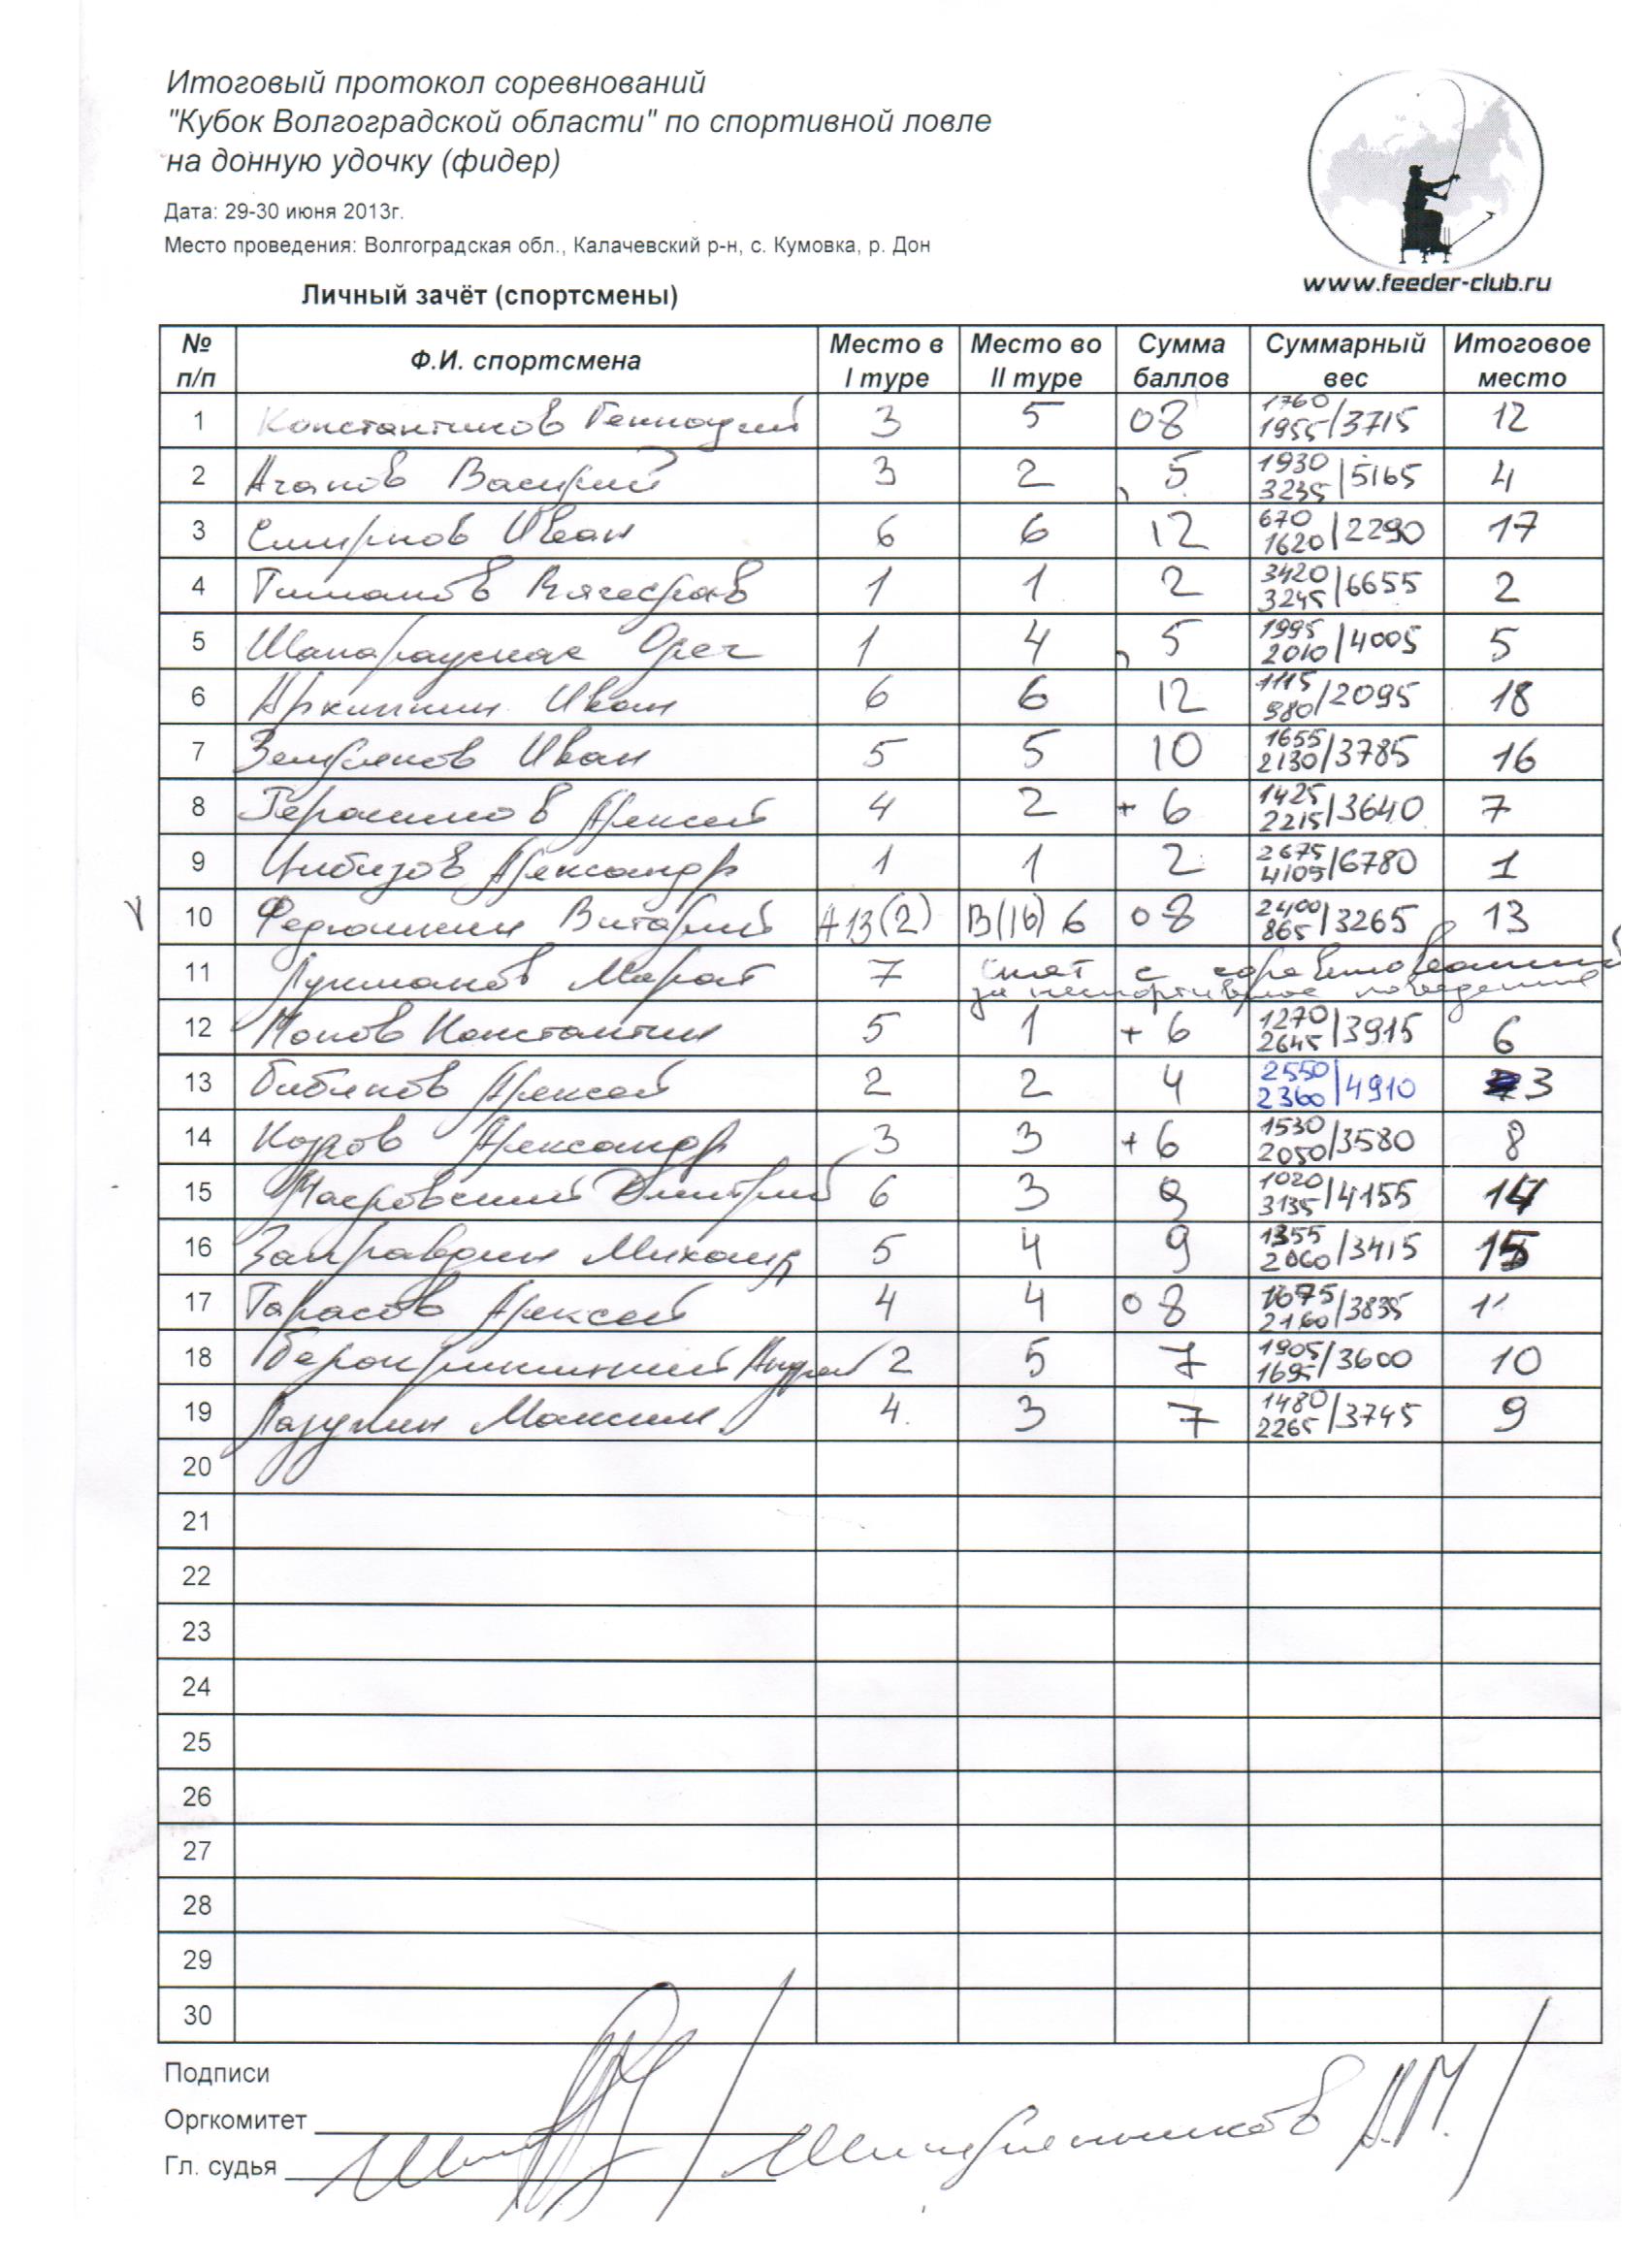 Итоговый протокол соревнований
"Кубок Волгоградской области" по спортивной ловле
на донную удочку (фидер)
Дата: 29-30 июня 2013г.
Место проведения: Волгоградская обл., Калачевский р-н, с. Кумовка, р. Дон
www.feeder-club.ru
Личный зачёт (спортсмены)
№ п/п Ф.И. спортсмена Место в I туре Место во II туре Сумма баллов Суммарный вес Итоговое место
1 Константинов Геннадий 3 5 08 1760 1955/3715 12
2 Агапов Василий 3 2 5 1930 3235/5165 4
3 Смирнов Иван 6 6 12 670 1620/2290 17
4 Тимаков Вячеслав 1 1 2 3420 3245/6655 2
5 Олег 1 4 5 1995 2010/4005 5
6 Иван 6 6 12 1115 980/2095 18
7 Земляков Иван 5 5 10 1655 2130/3785 16
8 Герасимов Алексей 4 2 + 6 1425 2215/3640 7
9 Цибизов Александр 1 1 2 2675 4105/6780 1
V 10 Федюшкин Виталий А13(2) В(16) 6 08 2400 865/3265 13
11 Лукманов Марат 7 Снят с соревнований
за неспортивное поведение
12 Попов Константин 5 1 + 6 1270 2645/3915 6
13 Бибиков Алексей 2 2 4 2550 2360/4910 3
14 Александр 3 3 + 6 1530 2050/3580 8
15 Дмитрий 6 3 9 1020 3135/4155 14
16 Михаил 5 4 9 1355 2060/3415 15
17 Тарасов Алексей 4 4 08 1675 2160/3835 11
18 Андрей 2 5 7 1905 1695/3600 10
19 Максим 4 3 7 1480 2265/3745 9
20
21
22
23
24
25
26
27
28
29
30
Подписи
Оргкомитет
Гл. судья